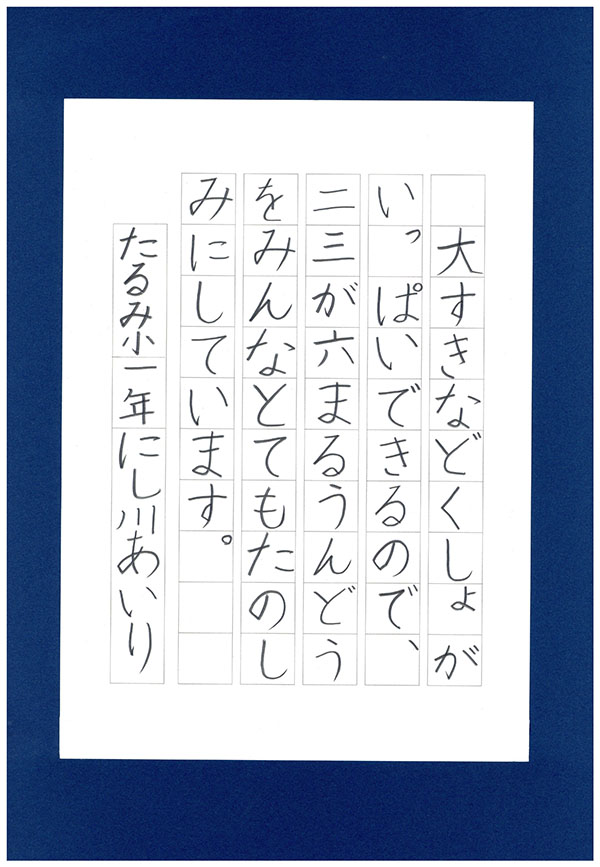 大すきなどくしょが
いっぱいできるので、
二三が六まるうんどう
をみんなとてもたのし
みにしています。
たるみ小一年にし川あいり